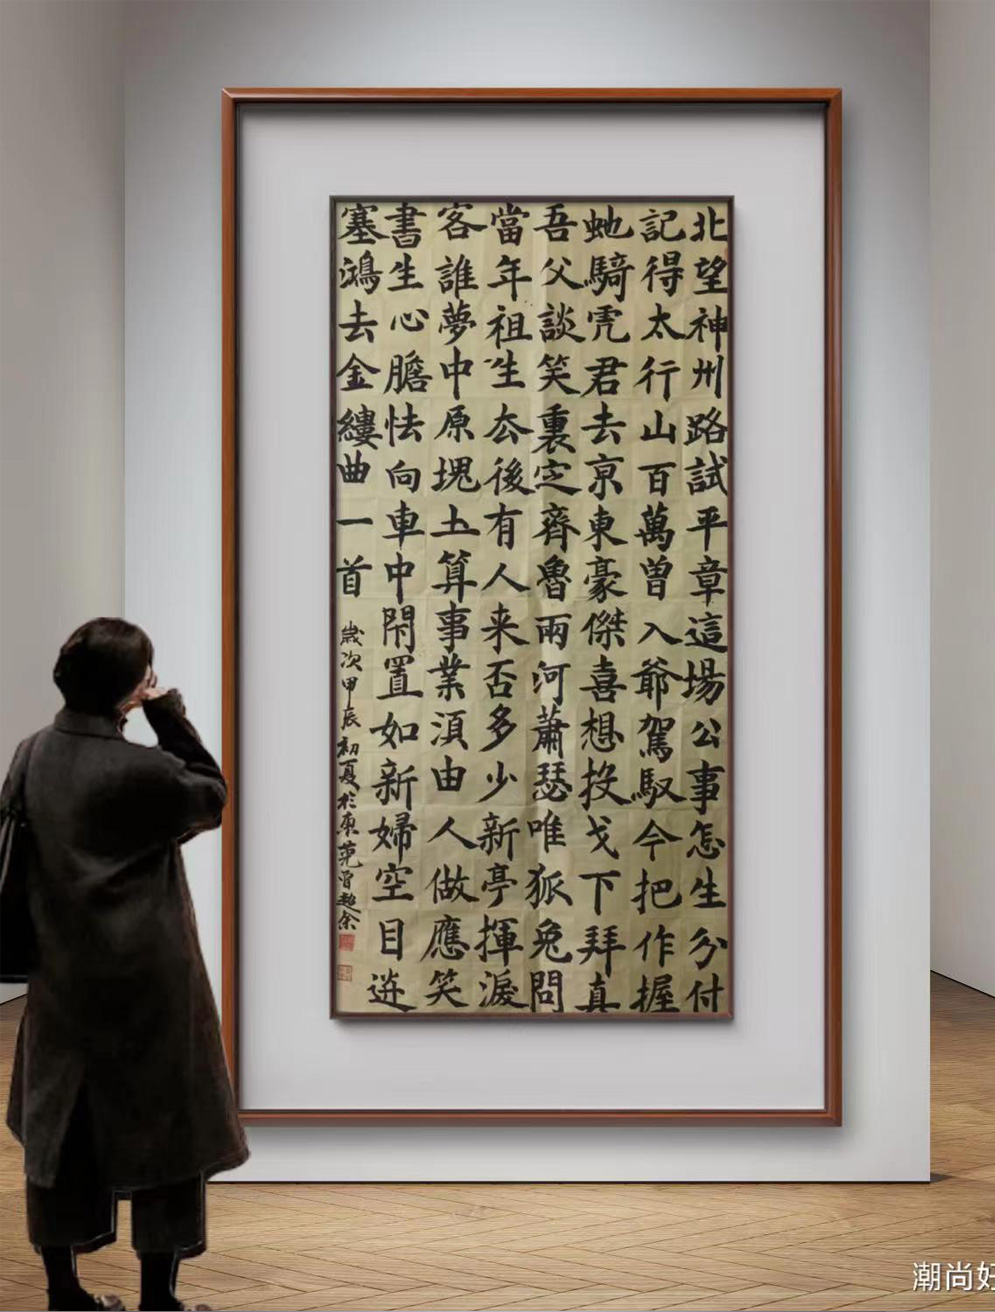 北望神州路試平章這場公事怎生分付
記得太行山百萬曾入爺駕馭今把作握
虵騎虎君去京東豪傑喜想投戈下拜真
吾父談笑裏定齊魯兩河蕭瑟唯狐兔問
當年祖生厺後有人来否多少新亭揮淚
客誰夢中原塊土算事業須由人做應笑
書生心膽怯向車中閉置如新婦空目送
塞鴻去金縷曲一首
歲次甲辰初夏於
潮尚好